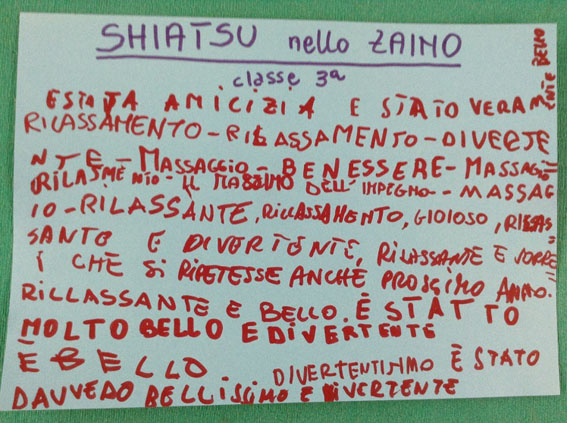 SHIATSU nello ZAINO
classe 3ª
ESTATA AMICIZIA E STATO VERAM
ENTE BELLO
RILASSAMENTO-RILASSAMENTO-DIVERTE
NTE-MASSAGGIO-BENESSERE-MASSAGGI
RILASMENTO-IL MASSIMO DELL'IMPEGNO-MASSAG
IO-RILASSANTE, RILLASSAMENTO, GIOIOSO, RILAS=
SANTE E DIVERTENTE, RILASSANTE E VORRE
I CHE SI RIPETESSE ANCHE PROSSIMO ANNO.
RILLASSANTE E BELLO. È STATTO
MOLTO BELLO E DIVERTENTE
E BELLO DIVERTENTISIMO È STATO
DAVVEDO BELLISSIMO E DIVERTENTE